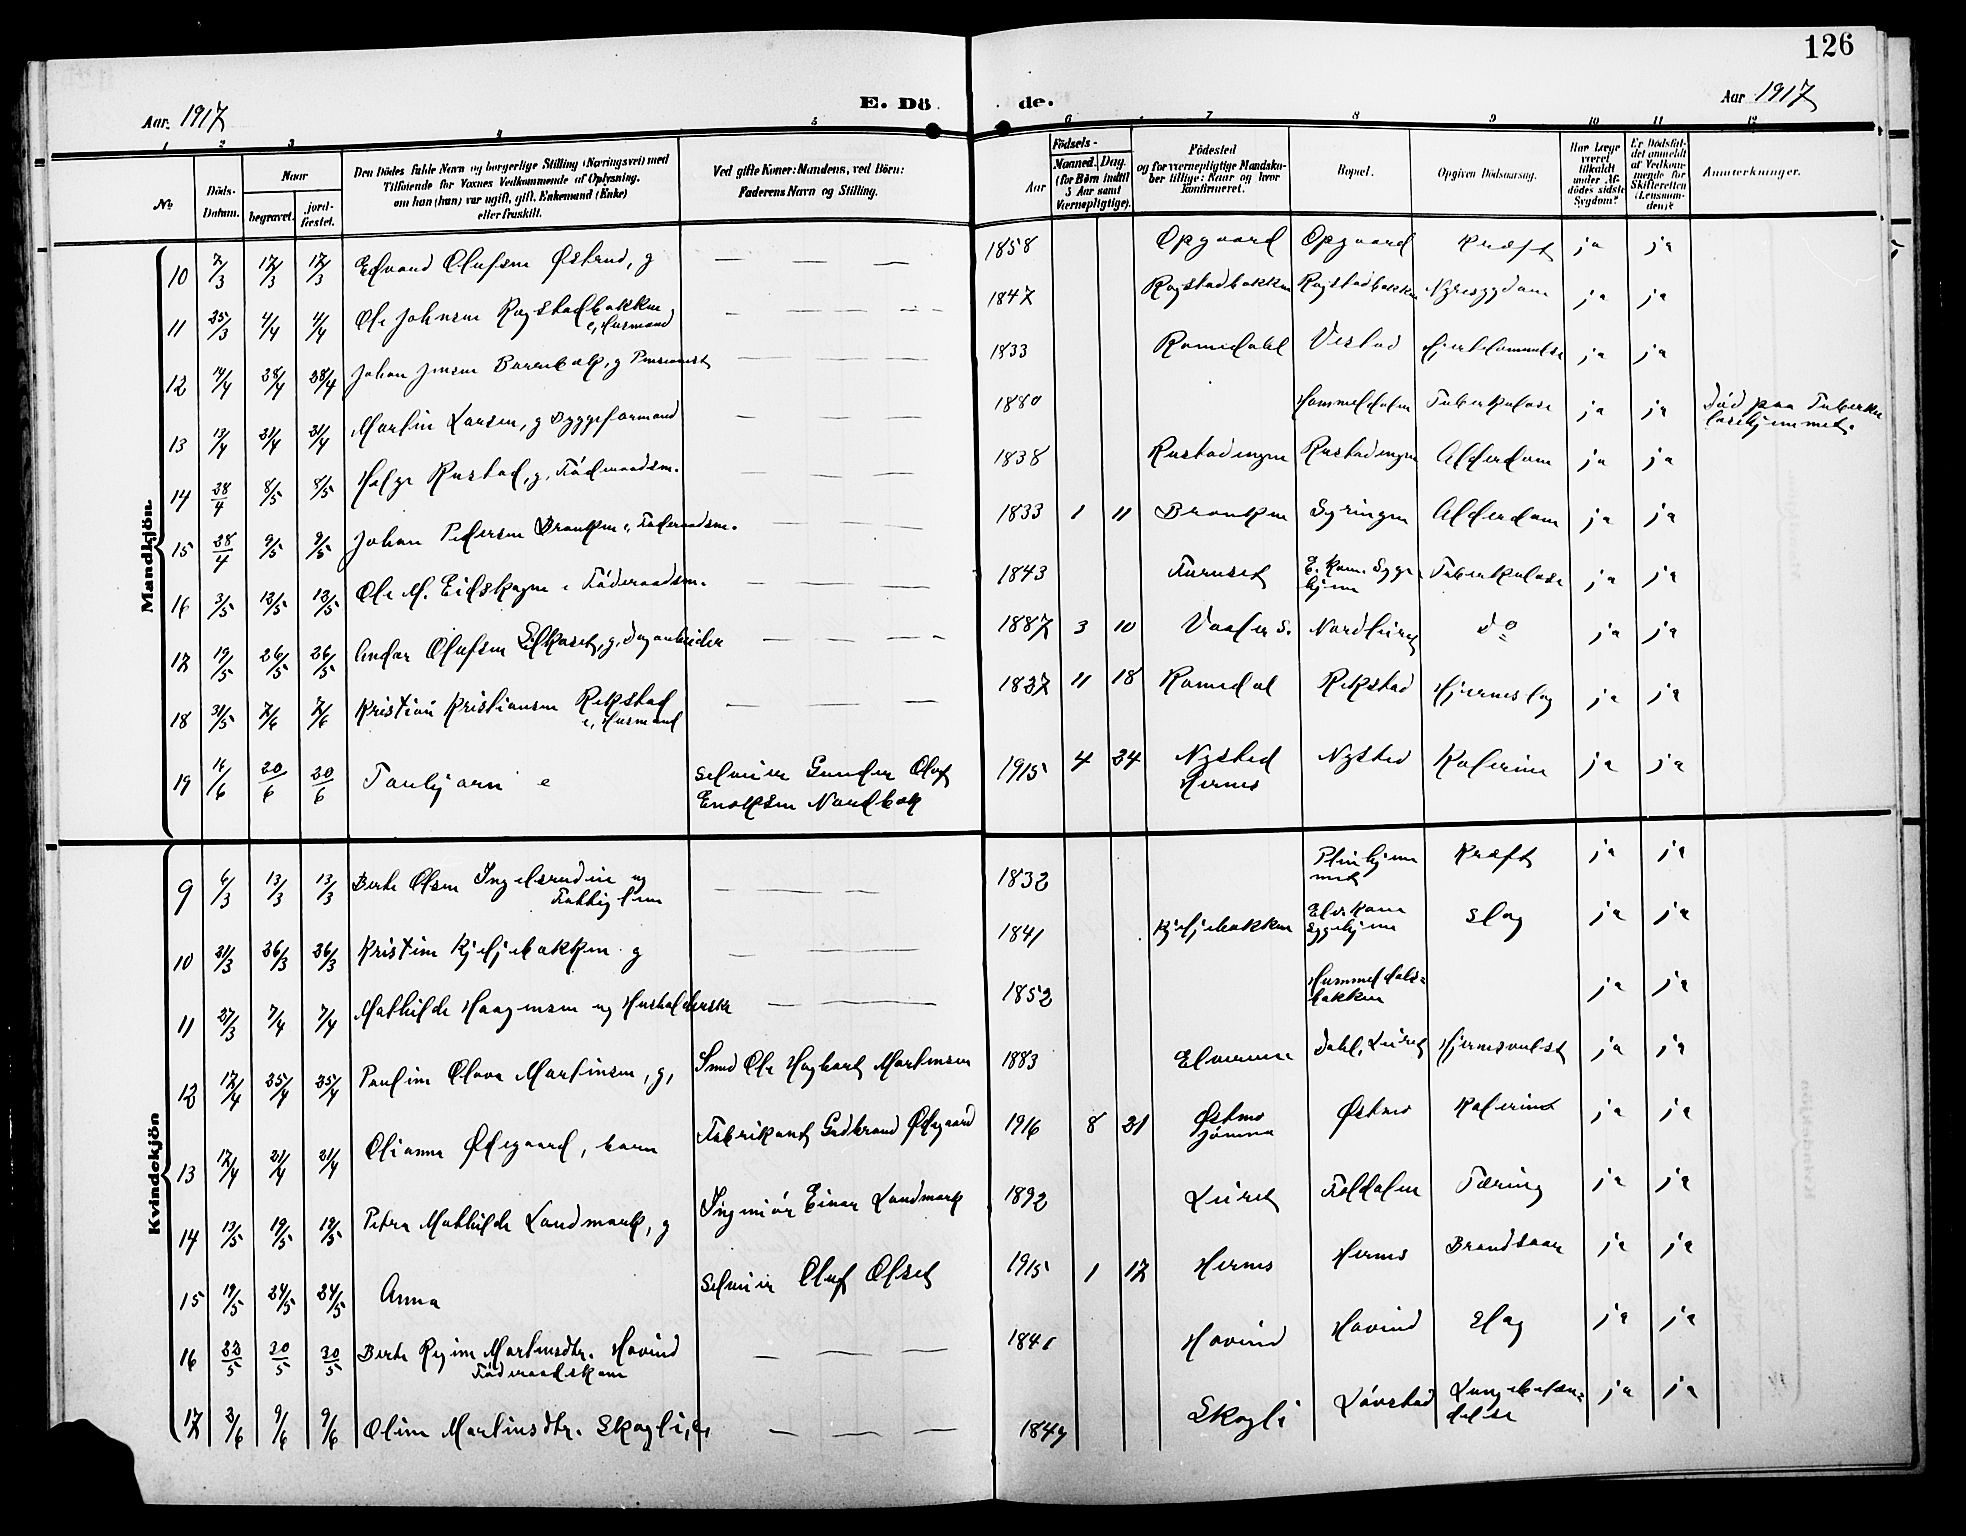 126
Aar. 1917
E. Dö
de.
Aar 1917
1
2
3
4
5
6
7
8
9
10
11
12
No
Döds-
Datum.
Naar
begravet.
jord-
fæstet.
Den Dödes fulde Navn og borgerlige Stilling (Næringsvei) med
Tilföiende for Voxnes Vedkommende af Oplysning,
om han (hun) var ugift, gift, Enkemand (Enke)
eller fraskilt.
Ved gifte Koner: Mandens, ved Börn:
Faderens Navn og Stilling.
Födsels-
Aar
Maaned. Dag.
(for Börn indtil
5 Aar samt
Værnepligtige).
Födested
og for værnepligtige Mandska-
ber tillige: Naar og hvor
konfirmeret.
Bopæl.
Opgiven Dödsaarsag.
Har Læge
været
tilkaldt
under Af-
dödes sidste
Sygdom?
Er Dödsfal-
det anmeldt
af Vedkom-
mende for
Skifteretten
(Lensman-
den)?
Anmerkninger.
Mandkjön.
10 7/3 17/3 17/3 Edvard Olufsen Østrud, g — — — 1858 Opgaard Opgaard Kræft ja ja
11 25/3 4/4 4/4 Ole Johnsen Rogstadbakken
e, Husmand — — — 1847 Rogstadbakken Rogstadbakken Nyresygdom ja ja
12 14/4 28/4 28/4 Johan Jensen Borrebæk, g Pensionist — — — 1833 Romedahl Vestad Hjertelammelse ja ja
13 13/4 21/4 21/4 Martin Larsen, g Byggeformand — — — 1880 Hommeldalen Tuberkulose ja ja Död paa Tuberku
losehjemmet.
14 28/4 8/5 8/5 Helge Rustad, g, Föderaadsm. — — — 1838 Rustadengen Rustadengen Alderdom ja ja
15 28/4 9/5 9/5 Johan Pedersen Braaten e, Föderaadsm. — — — 1833 1 11 Braaten Syringen Alderdom ja ja
16 3/5 13/5 13/5 Ole M. Eidskogen e Föderaadsm. — — — 1843 Furuset E. Kom. Syge
hjem Tuberkulose ja ja
17 19/5 26/5 26/5 Olufsen g, Dagarbeider — — — 1887 3 10 Vaaler S. Nordluret do ja ja
18 31/5 7/6 7/6 Kristian Kristiansen Rekstad
e, Husmand — — — 1837 11 18 Romedal Rekstad Hjerneslag ja ja
19 11/6 20/6 20/6 Torbjørn e Selveier Gunder Oluf
Enoksen Nordbæk 1915 4 24 Nysted
Hernes Nysted Kolerine ja ja
Kvindekjön
9 6/3 13/3 13/3 Berte Olsen Ingelsrudeie ug
Fattiglem — — — 1832 Pleiehjem
met Kræft ja ja
10 21/3 26/3 26/3 Kristine Kjeljebakken g — — — 1841 Kjeljebakken Elv. Kom
Sygehjem Slag ja ja
11 27/3 7/4 7/4 Mathilde Haagensen ug Husholderske — — — 1852 Hummeldals-
bakken ja ja
12 17/4 25/4 25/4 Pauline Olava Martinsen, g, Smed Ole Hagbart Martinsen 1883 Elverum Dahl, Leiret Hjernesvulst ja ja
13 17/4 21/4 21/4 Olianna Ødegaard, barn Fabrikant Gudbrand Ødegaard 1916 8 21 Østmo
Jömna Østmo Kolerine ja ja
14 13/5 19/5 19/5 Petra Mathilde Landmark, g Ingeniør Einar Landmark 1892 Leiret Foldalen Tæring ja ja
15 19/5 24/5 24/5 Anna Selveier Oluf Olset 1915 1 17 Hernes Hernes Brandsaar ja ja
16 23/5 30/5 30/5 Berte Regine Martinsdtr. Hovind
Föderaadskone — — — 1841 Hovind Hovind Slag ja ja
17 3/6 9/6 9/6 Oline Martinsdtr. Skogli, e, — — — 1849 Skogli Lövstad Lungebetæn-
delse ja ja